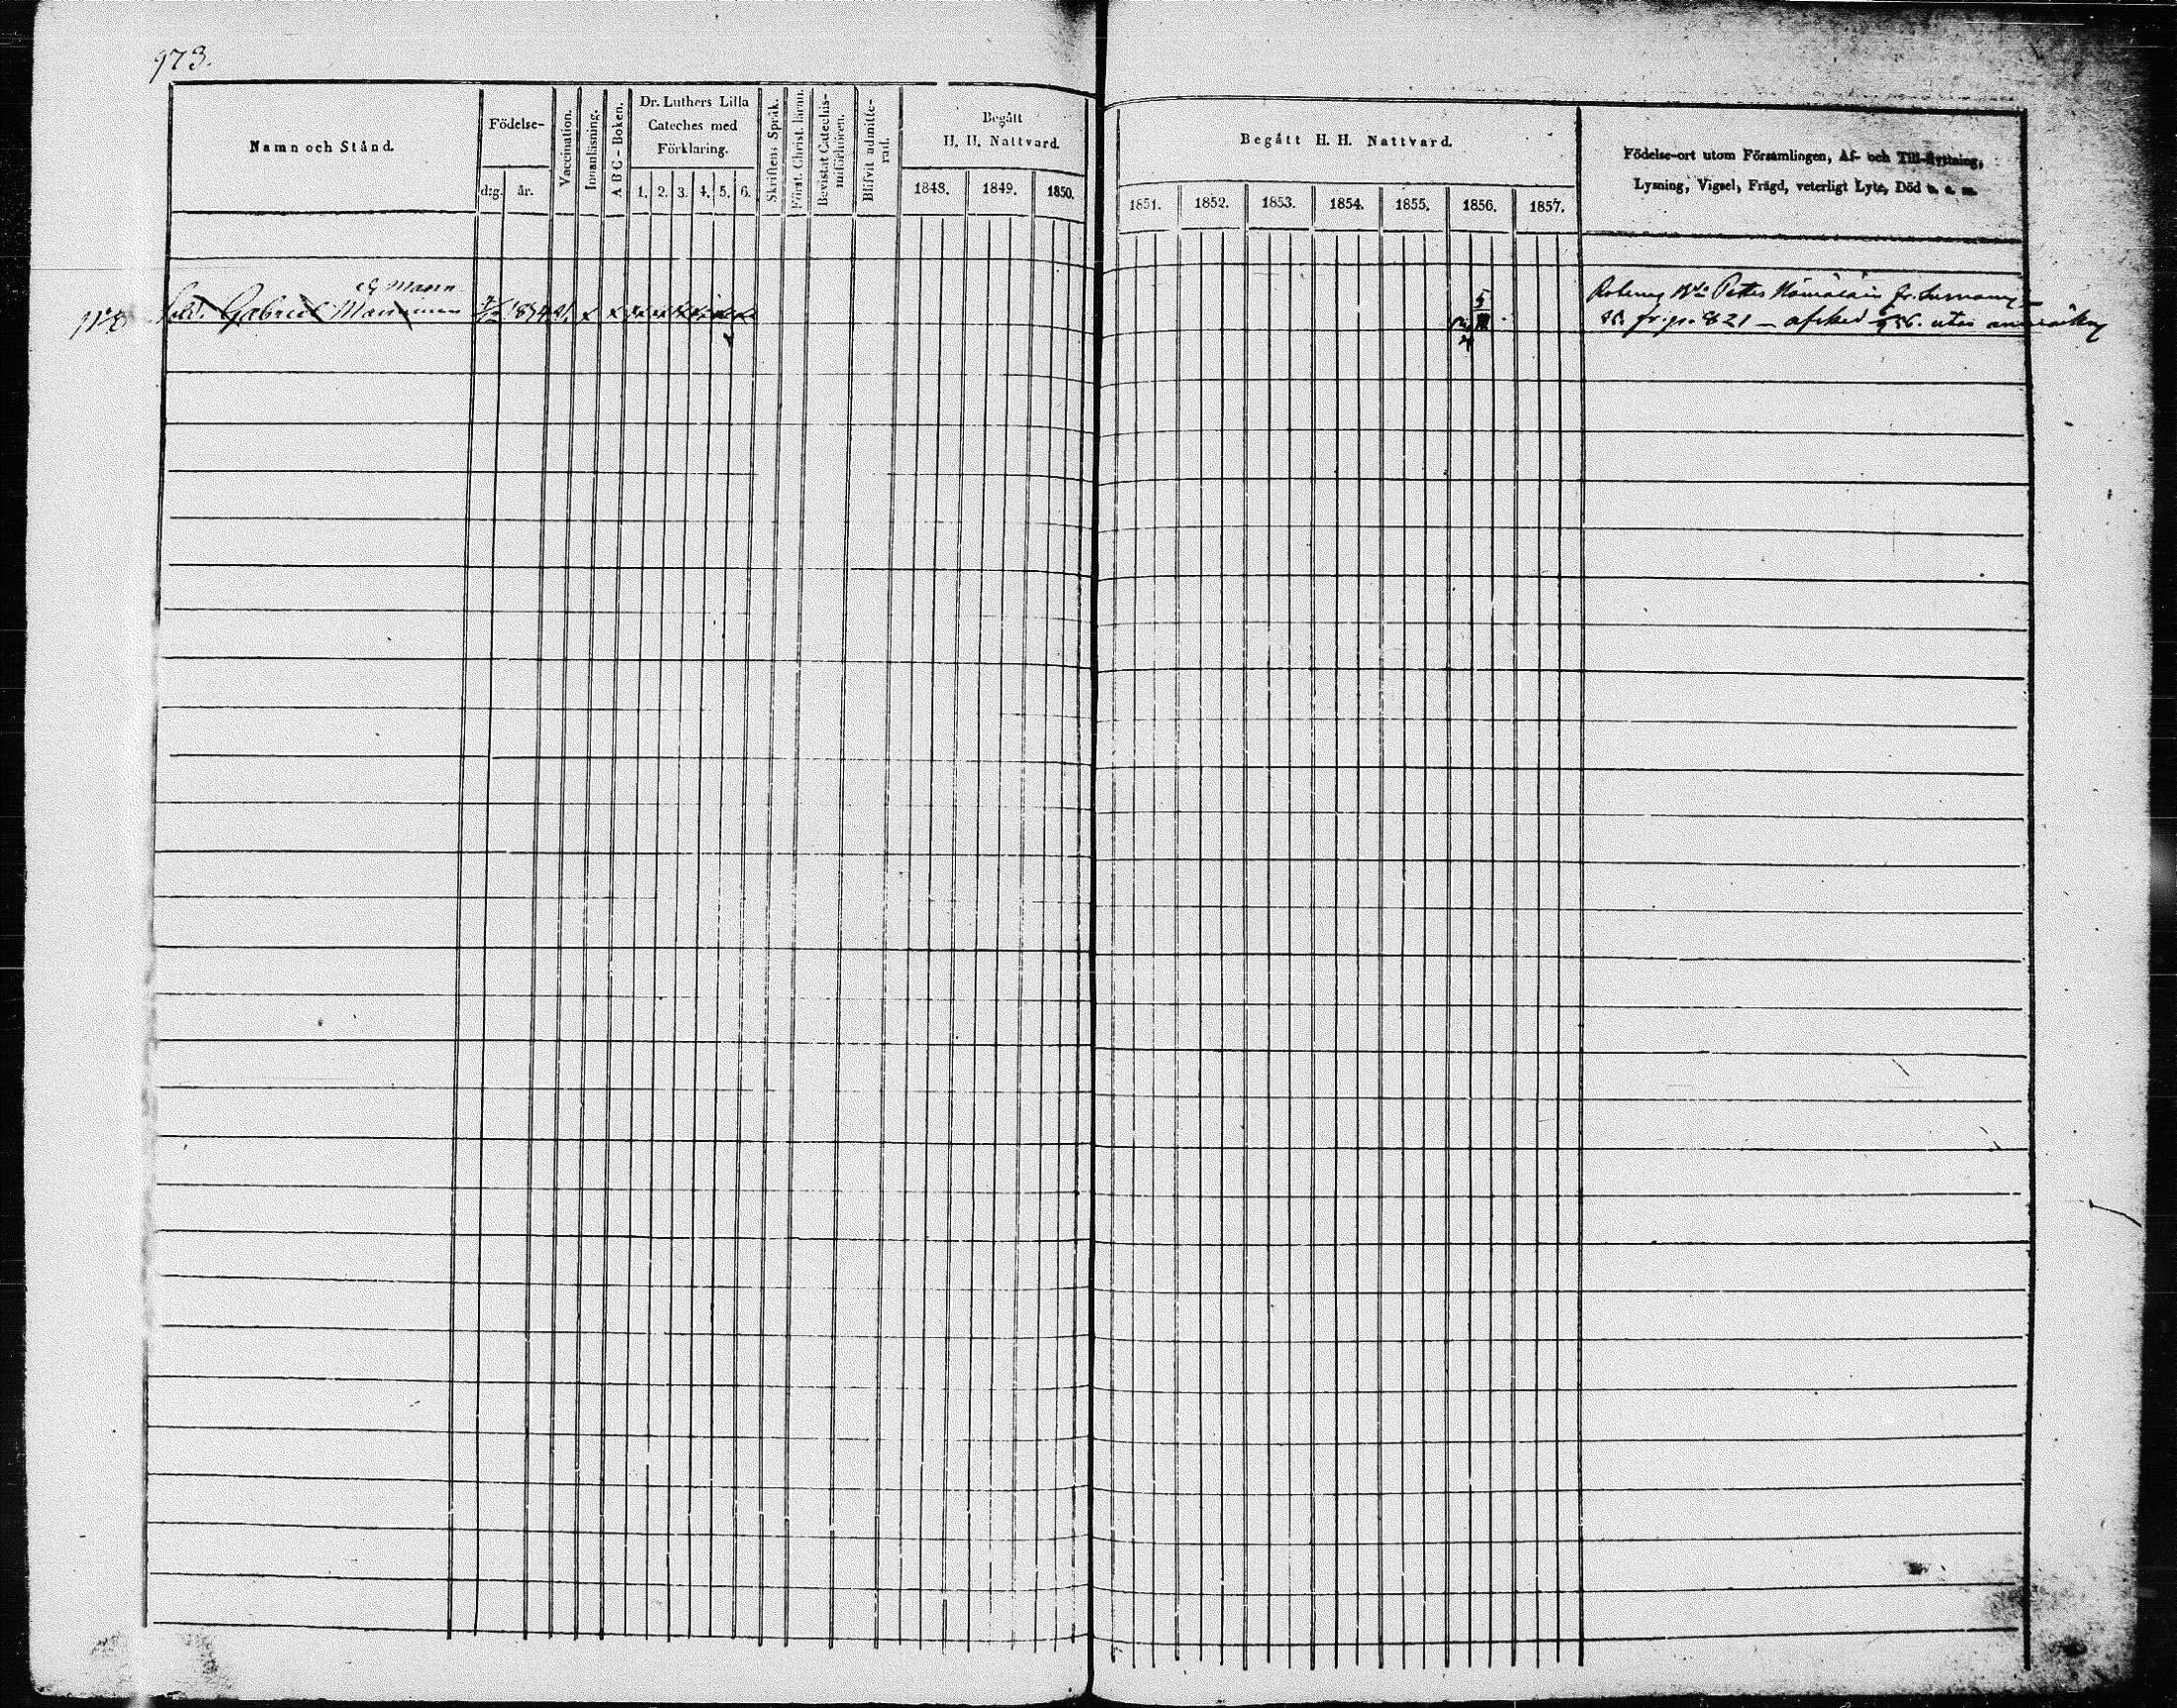 973.
Namn och Stånd.
Födelse-
d:g. år.
Vaccination.
Innanläsning.
A B C - Boken.
Dr. Luthers Lilla
Cateches med
Förklaring.
1. 2. 3. 4. 5. 6.
Skriftens Språk.
Först. Christ. lärm.
Bevistat Catechis-
miförhören.
Blifvit admitte-
rad.
Begått
H. H. Nattvard.
1848. 1849. 1850.
Begått H. H. Nattvard.
1851. 1852. 1853. 1854. 1855. 1856. 1857.
Födelse-ort utom Församlingen, Af- och Till-flyttning,
Lysning, Vigsel, Frägd, veterligt Lyte, Död m. m.
Mann
Sold. Gabriel Manninen
5
4
Petter Hämäläin fr.
fr. p. 821 — afsked 56. utan anmärkn